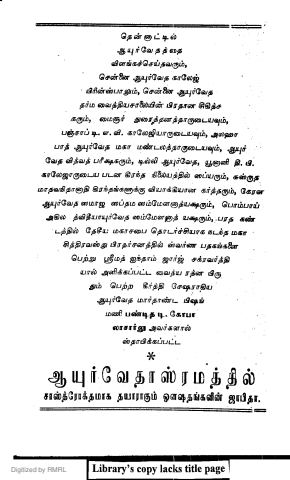 தென்னாட்டில்
ஆயுர்வேதத்தை
விளங்கச்செய்தவரும்,
சென்னை ஆயுர்வேத காலேஜ்
பிரின்ஸ்பாலும், சென்னை ஆயுர்வேத
தர்ம வைத்தியசாலையின் பிரதான சிகித்ஸ
கரும், மைஸூர் அரைத்தனத்தாருடையவும்,
பஞ்சாப் டி. எ. வி. காலேஜியாருடையவும், அலஹா
பாத் ஆயுர்வேத மகா மண்டலத்தாருடையவும், ஆயுர்
வேத வித்வத் பரீக்ஷகரும், டில்லி ஆயுர்வேத, யூனானி தி. பி.
காலேஜாருடைய படன கிரந்த நிலயத்தில் ஸப்யரும், கன்னுத
மாதவநிதானாதி கிரந்தங்களுக்கு வியாக்கியான கர்த்தரும், கேரள
ஆயுர்வேத ஸமாஜ ஸப்தம ஸம்மேளனாத்யக்ஷரும், பொம்பாய்
அகில த்விதீயாயுர்வேத ஸம்மேளனாத் யக்ஷரும், பரத கண்
டத்தில் தேசீய மகாசபை தொடர்ச்சியாக கடந்த மகா
சித்திரவஸ்து பிரதர்சனத்தில் ஸ்வர்ண பதகங்களை
பெற்று ஸ்ரீமத் ஐந்தாம் ஜார்ஜ் சக்ரவர்த்தி
யால் அளிக்கப்பட்ட வைத்ய ரத்ன பிரு
தும் பெற்ற கீர்த்தி சேஷராகிய
ஆயுர்வேத மார்தாண்ட பிஷங்
மணி பண்டித டி. கோபா
லாசார்லு அவர்களால்
ஸ்தாபிக்கப்பட்ட
*
ஆயுர்வேதாஸ்ரமத்தில்
சாஸ்த்ரோக்தமாக தயாராகும் ஔஷதங்களின் ஜாபிதா.
Digitized by RMRL
Library's copy lacks title page